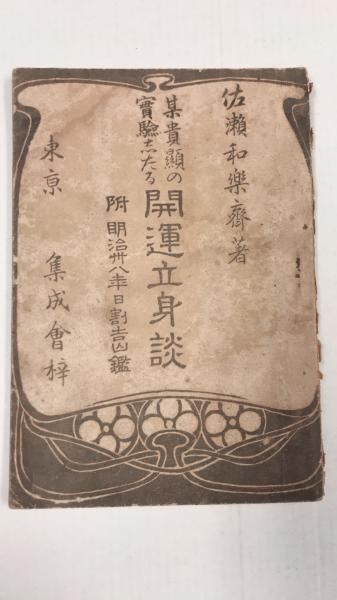 佐瀬和樂齋著
某貴顯の
實驗志たる
開運立身談
附 明治卅八年日割吉凶鑑
東京 集成會梓